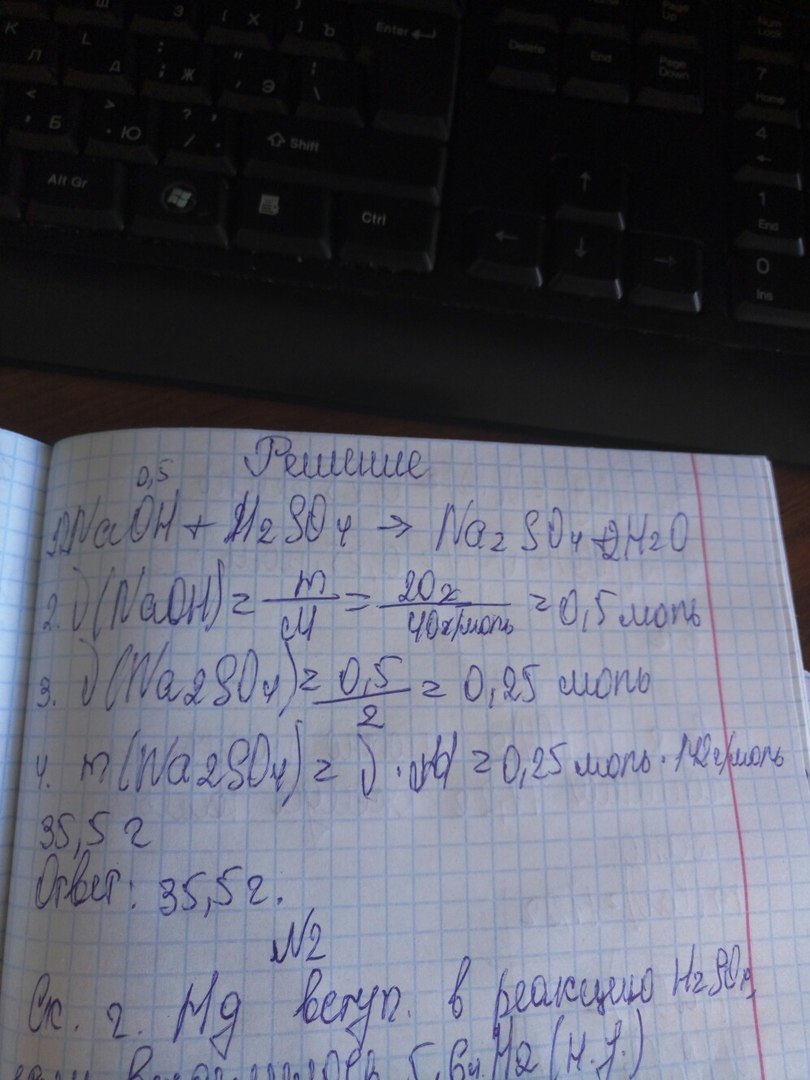 Ш Э ( Х ) Ъ Enter Delete End Page Up Page Down Num Lock
К Л L Д : ; Ж " Э ! \ 7 Home
< , Б > . Ю ? , / . Shift 4
Alt Gr Ctrl 1 End
0 Ins
Решение
0,5
NaOH + H2SO4 → Na2SO4 + 2H2O
2. ν(NaOH) = m/M = 20г/40г/моль = 0,5 моль
3. ν(Na2SO4) = 0,5/2 = 0,25 моль
4. m(Na2SO4) = ν · M = 0,25 моль · 142г/моль
35,5 г
Ответ: 35,5г.
N2
Ск. г. Mg вступ. в реакцию H2SO4,
5,6л. H2 (н.у.)